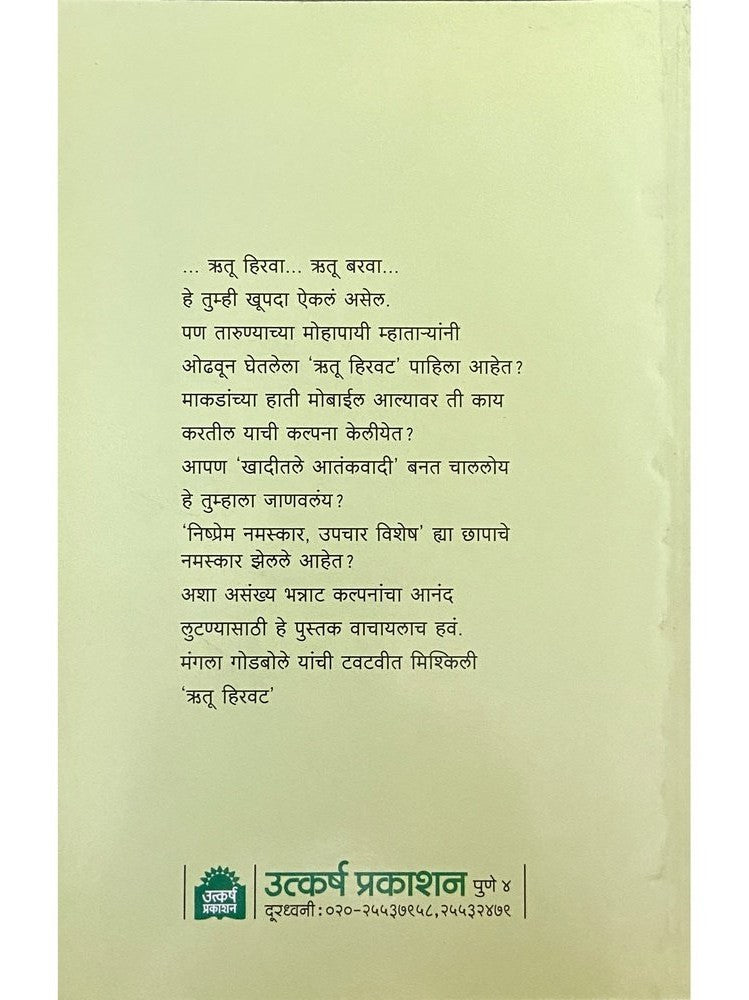 ... ऋतू हिरवा... ऋतू बरवा...
हे तुम्ही खूपदा ऐकलं असेल.
पण तारुण्याच्या मोहापायी म्हाताऱ्यांनी
ओढवून घेतलेला ‘ऋतू हिरवट’ पाहिला आहेत?
माकडांच्या हाती मोबाईल आल्यावर ती काय
करतील याची कल्पना केलीयेत?
आपण ‘खादीतले आतंकवादी’ बनत चाललोय
हे तुम्हाला जाणवलंय?
‘निष्प्रेम नमस्कार, उपचार विशेष’ ह्या छापाचे
नमस्कार झेलले आहेत?
अशा असंख्य भन्नाट कल्पनांचा आनंद
लुटण्यासाठी हे पुस्तक वाचायलाच हवं.
मंगला गोडबोले यांची टवटवीत मिश्किली
‘ऋतू हिरवट’
उत्कर्ष
प्रकाशन
उत्कर्ष प्रकाशन पुणे ४
दूरध्वनी : ०२०-२५५३७९५८, २५५३२४७९